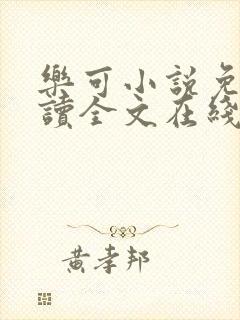 樂可小說免
讀全文在綫
黃孝邦